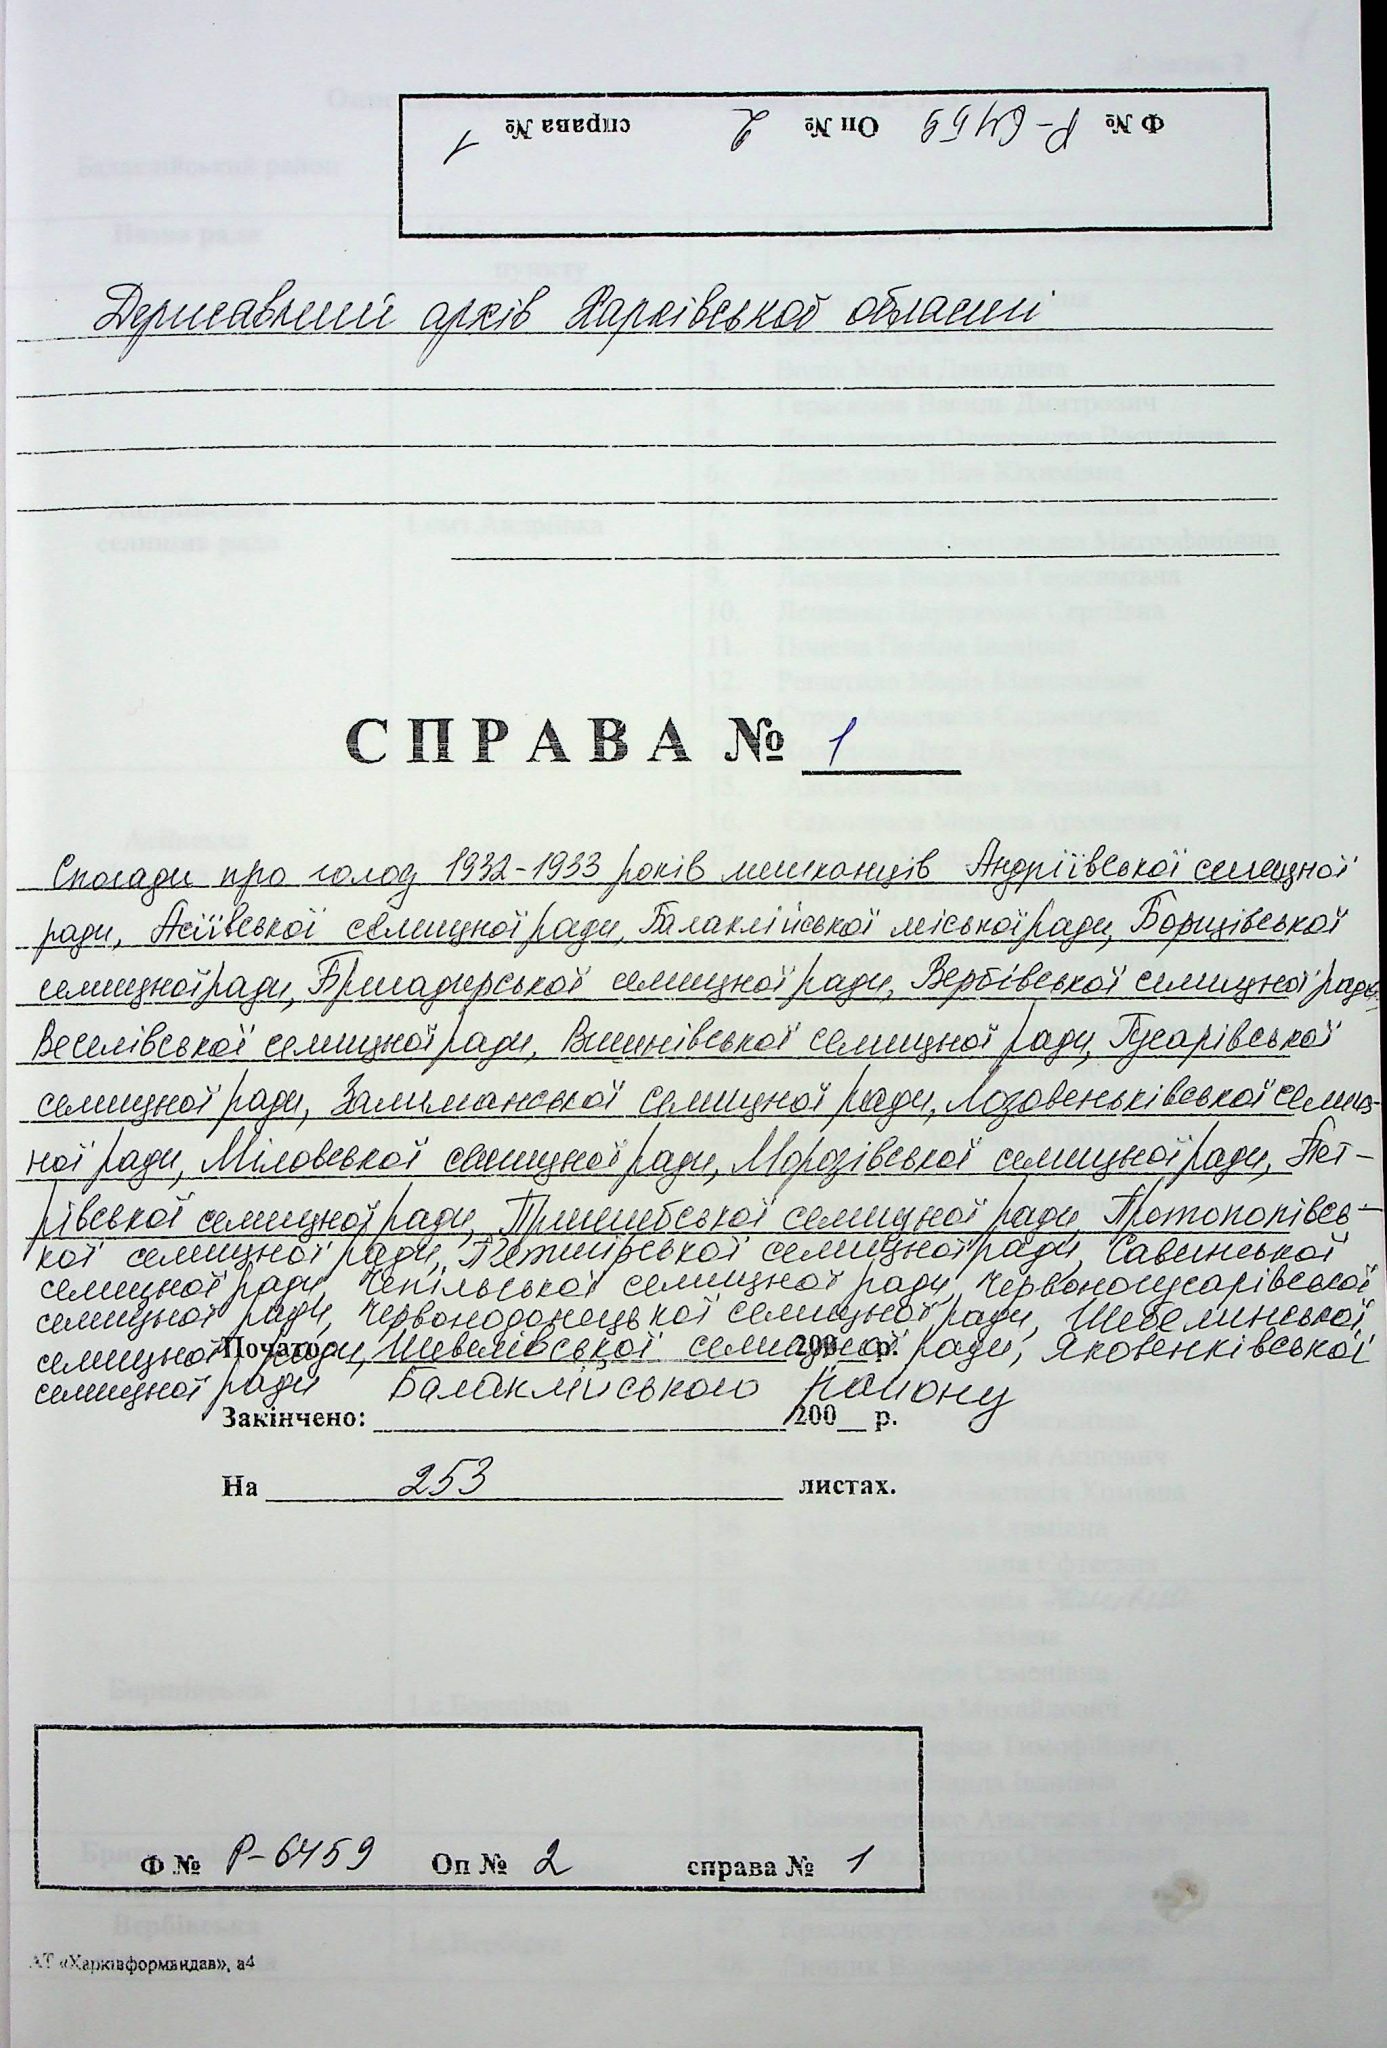 Ф № Р-6459 Оп № 2 справа № 1
Державний архів Харківської області
СПРАВА № 1
Спогади про голод 1932-1933 років мешканців Андріївської селищної
ради, Асіївської селищної ради, Балаклійської міської ради, Борщівської
селищної ради, Бригадирської селищної ради, Вербівської селищної ради,
Веселівської селищної ради, Вишнівської селищної ради, Гусарівської
селищної ради, Залиманської селищної ради, Лозовеньківської селищ-
ної ради, Міловської селищної ради, Морозівської селищної ради, Пет-
рівської селищної ради, Пришибської селищної ради, Протопопівсь-
кої селищної ради, П'ятигірської селищної ради, Савинської
селищної ради, Чепільської селищної ради, Червоногусарівської
селищної ради, Червонодонецької селищної ради, Шебелинської
селищної ради, Шевелівської селищної ради, Яковенківської
Почато: 200 р.
селищної ради Балаклійського району
Закінчено: 200__ р.
На 253 листах.
Ф № Р-6459 Оп № 2 справа № 1
АТ «Харківформвидав», а4